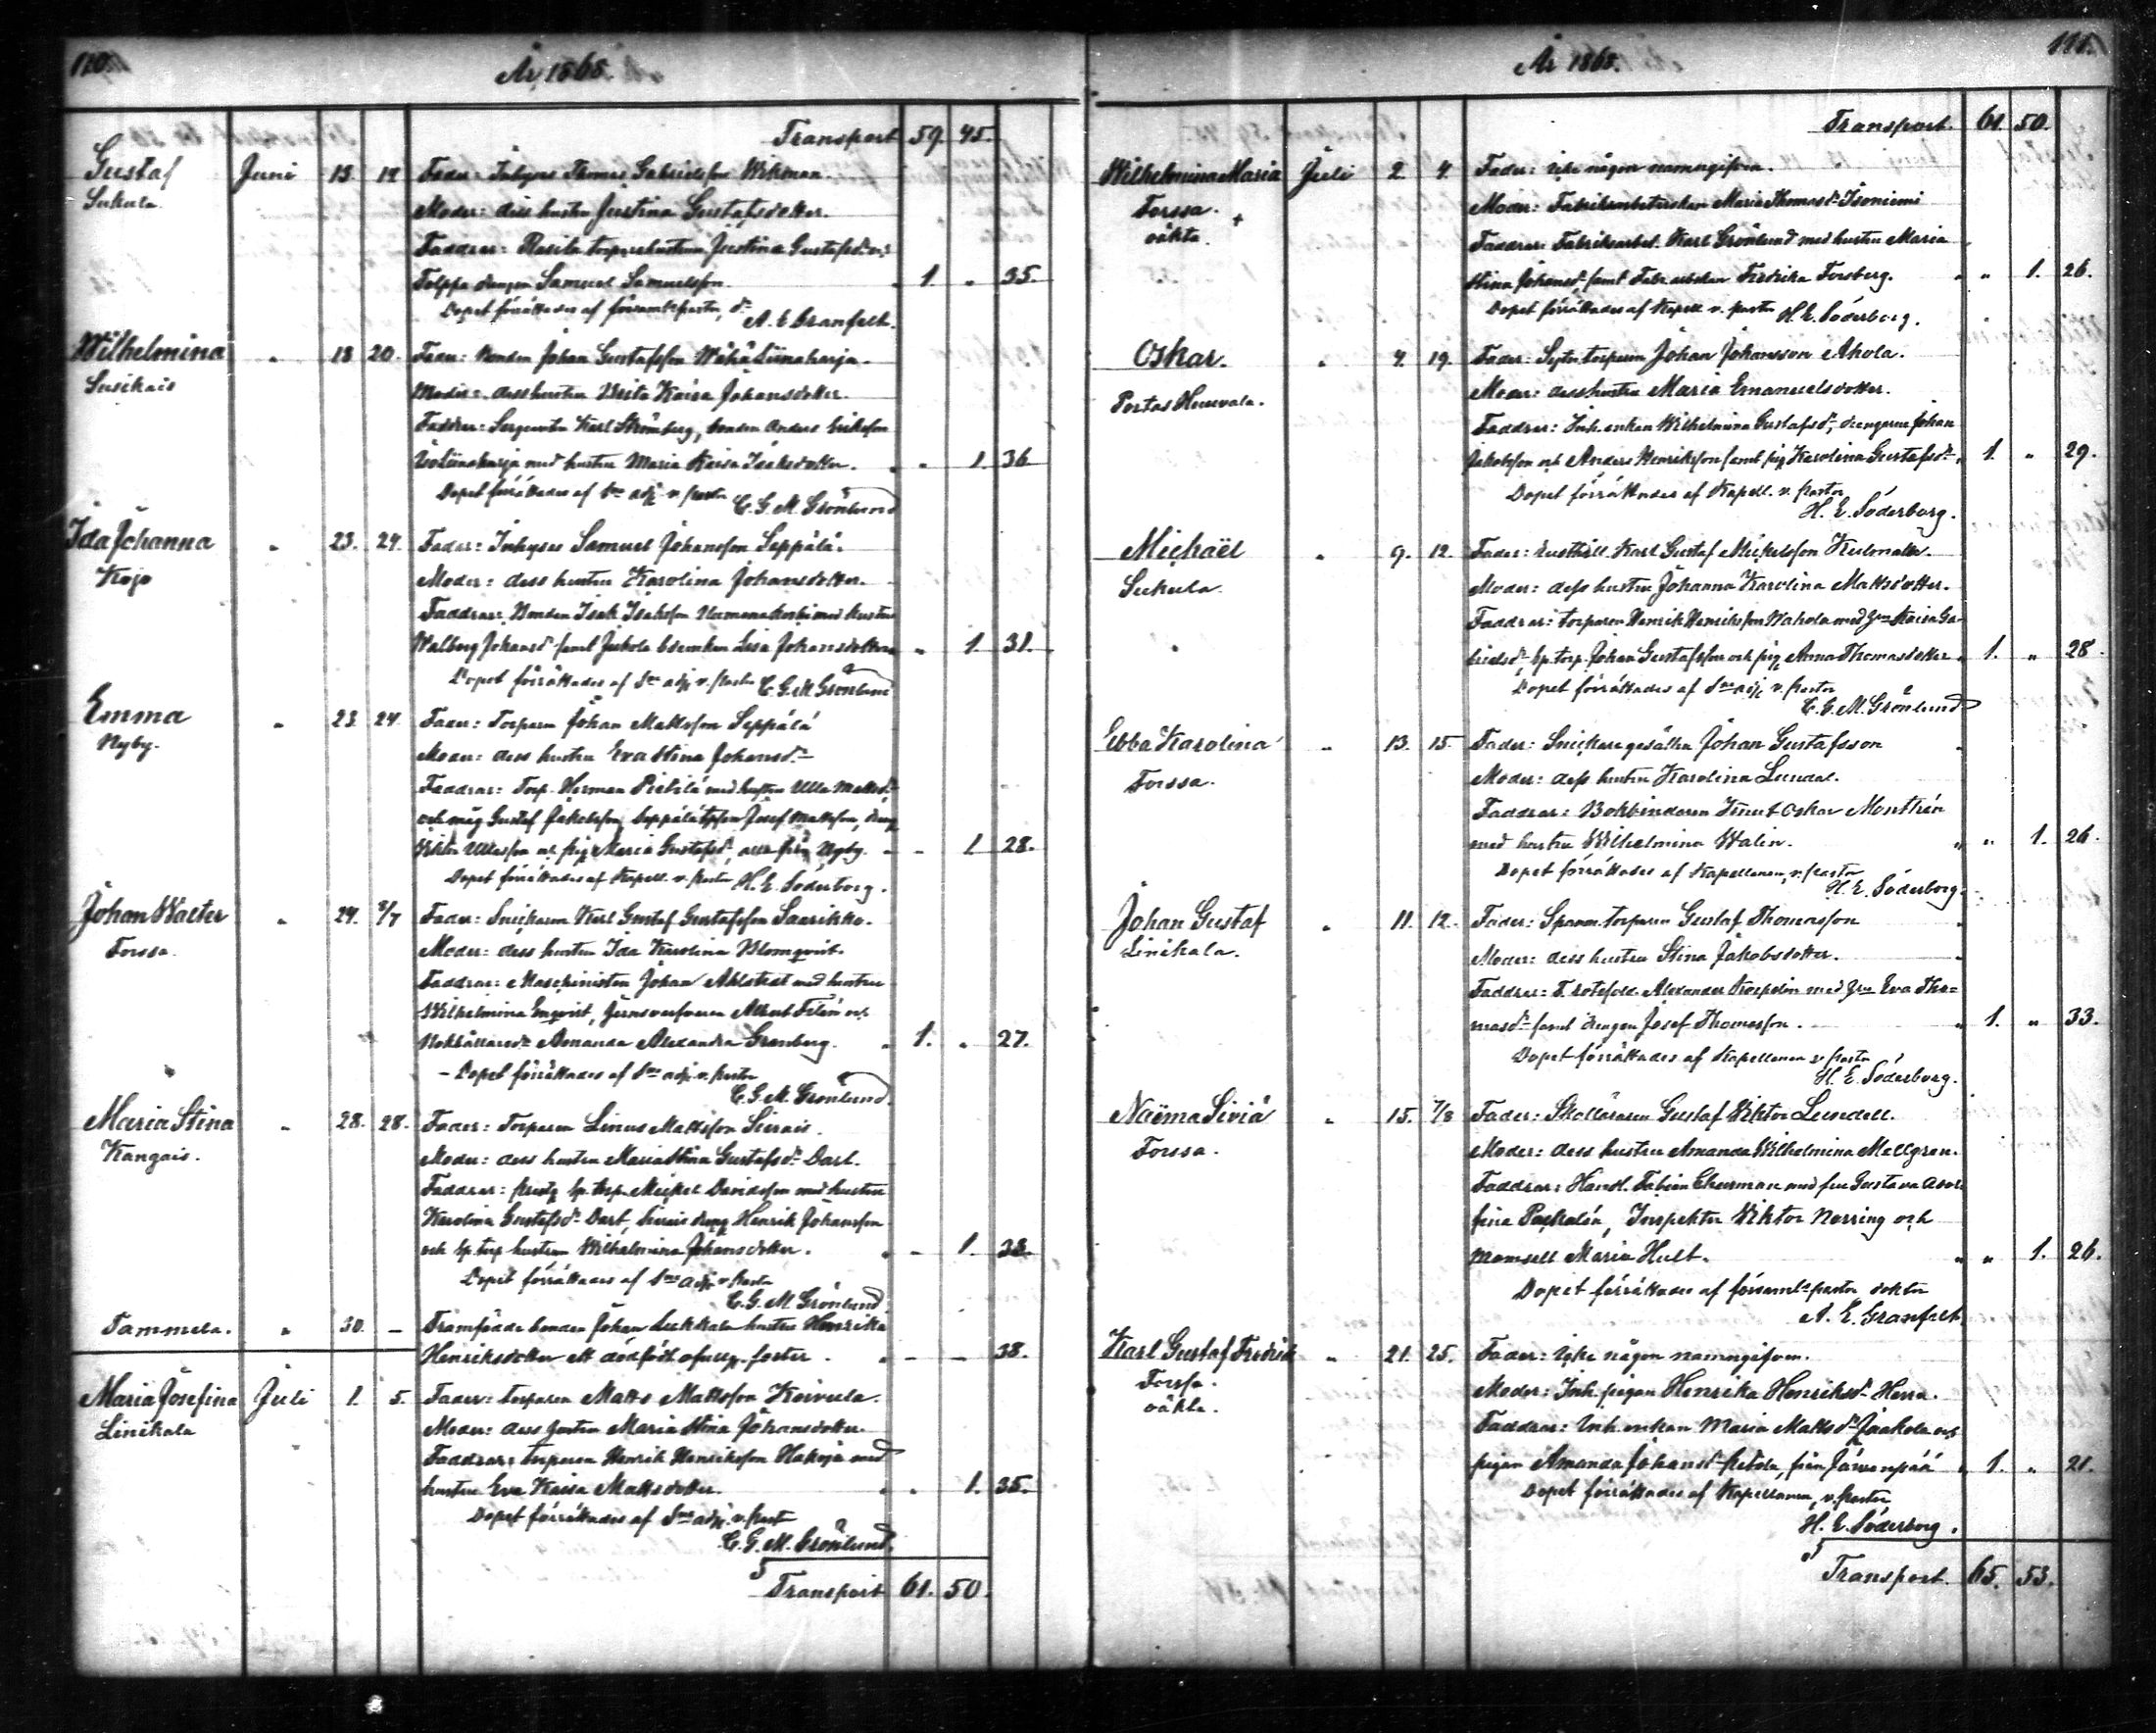 110.
År 1868.
Transport 59. 45.
Gustaf Juni 15. 19 Fader: Inhyses Thomas Gabrielsson Wikman.
Sukula. Moder: dess hustru Justina Gustafsdotter.
Faddrar: Rasila torparehustrun Justina Gustafsdr och
Tolppa drengen Samuel Samuelsson. 1 " 35.
Dopet förrättades af församl. pastor, dr
A. E. Granfelt.
Wilhelmina " 18 20. Fader: bonden Johan Gustafsson Wähä Liinaharja.
Susikais Moder: dess hustru Brita Kaisa Johansdotter.
Faddrar: Sergeanten Karl Strömberg, bonden Anders Eriksson
Iso Liinaharja med hustru Maria Kaisa Isaksdotter. " 1. 36
Dopet förrättades af Sne adj. v. pastor
C. G. M. Grönlund
Ida Johanna " 23. 24. Fader: Inhyses Samuel Johansson Seppälä.
Kojo Moder: dess hustru Karolina Johansdotter.
Faddrar: Bonden Isak Isaksson med hustru
Walborg Johansdr samt Jukola Lisa Johansdotter " 1 31.
Dopet förrättades af Sne adj. v. pastor C. G. M. Grönlund
Emma " 23. 24. Fader: Torparen Johan Mattsson Seppälä
Nyby. Moder: dess hustru Eva Stina Johansdr
Faddrar: Torp. Herman Pietilä med hustru Ulla Mattsdr
och måg Gustaf Jakobsson, Seppälä Josef Mattsson, dreng
Wiktor och pig. Maria Gustafsdr, alla från Nyby. " 1 28.
Dopet förrättades af Kapell. v. pastor H. E. Söderborg.
Johan Walter " 24. 5/7 Fader: Snickaren Karl Gustaf Gustafsson Saarikko.
Forssa. Moder: dess hustru Ida Karolina Blomqvist.
Faddrar: Maschinisten Johan Ahlstedt med hustru
Wilhelmina Enqvist, Jernsvarfvaren Albert Filén och
Bokhållaredr Amanda Alexandra Granberg. " 1. " 27.
- Dopet förrättades af Sne adj. v. pastor
C. G. M. Grönlund.
Maria Stina " 28. 28. Fader: Torparen Linus Mattsson Sierais.
Kangais. Moder: dess hustru Maria Stina Gustafsdr Dart.
Faddrar: torp. Mickel Davidsson med hustru
Karolina Gustafsdr Dart, Sierais dreng Henrik Johansson
och torp. hustrun Wilhelmina Johansdotter. " - 1. 33.
Dopet förrättades af Sne adj. v. pastor
C. G. M. Grönlund
Tammela. " 30. - Framfödde bonden Johan Leikkala hustru Henrika
Henriksdotter ett dödfödt foster. " - - 38.
Maria Josefina Juli 1. 5. Fader: torparen Matts Mattsson Koivula.
Linikala Moder: dess hustru Maria Stina Johansdotter.
Faddrar: torparen Henrik Henriksson Hakoja med
hustru Eva Kaisa Mattsdotter. " " 1. 35.
Dopet förrättades af Sne adj. v. past
C. G. M. Grönlund.
Transport 61. 50.
111.
År 1868.
Transport. 61. 50.
Wilhelmina Maria Juli 2 4. Fader: icke någon namngifven.
Forssa. + Moder: Fabriksarbeterskan Maria Thomasdr Isoniemi
oäkta. Faddrar: Fabriksarbet. Karl Grönlund med hustru Maria
Stina Johansdr, samt Fabr. arbetskan Fredrika Forsberg. " " 1. 26.
Dopet förrättades af Kapell. v. pastor H. E. Söderborg.
Oskar. " 4. 19. Fader: torparen Johan Johansson Ahola.
Portas Hunvala. Moder: dess hustru Maria Emanuelsdotter.
Faddrar: Inh. enkan Wilhelmina Gustafsdr, drengarne Johan
Jakobsson och Anders Henriksson samt pig. Karolina Gustafsdr " 1. " 29.
Dopet förrättades af Kapell. v. pastor
H. E. Söderborg.
Michaël " 9. 12. Fader: rusthåll. Karl Gustaf Mickelsson
Sukula. Moder: dess hustru Johanna Karolina Mattsdotter.
Faddrar: torparen Henrik Henriksson Wahola med hru Kaisa Ga-
brielsdr, torp. Johan Gustafsson och pig. Anna Thomasdotter " 1. " 28.
Dopet förrättades af Sne adj. v. pastor
C. G. M. Grönlund
Ebba Karolina " 13. 15. Fader: Snickare gesällen Johan Gustafsson
Forssa. Moder: dess hustru Karolina Lundal.
Faddrar: Bokbindaren Knut Oskar Monthén
med hustru Wilhelmina Walin. " " 1. 26.
Dopet förrättades af Kapellanen, v. pastor
H. E. Söderborg.
Johan Gustaf " 11. 12. Fader: torparen Gustaf Thomasson
Linikala. Moder: dess hustru Stina Jakobsdotter.
Faddrar: Alexander med hru Eva Tho-
masdr samt drengen Josef Thomasson. " 1. " 33.
Dopet förrättades af Kapellanen v. pastor
H. E. Söderborg.
Naëma Siviä " 15. 7/8 Fader: Skolläraren Gustaf Wiktor Lundell.
Forssa. Moder: dess hustru Amanda Wilhelmina Mellgren.
Faddrar: Handl. Fabian Ehurman med fru Gustava
fina Paskalén, Inspektor Wiktor Norring och
Mamsell Maria Hult. " " 1. 26.
Dopet förrättades af församls pastor doktor
A. E. Granfelt
Karl Gustaf Fredrik " 21. 25. Fader: icke någon namngifven.
Forssa. Moder: Inh. pigan Henrika Henriksdr Herra.
oäkta. Faddrar: Inh. enkan Maria Mattsdr Jaakola och
pigan Amanda Johansdr, från Järvenpää " 1. " 21.
Dopet förrättades af Kapellanen, v. pastor,
H. E. Söderborg.
Transport. 65. 53.